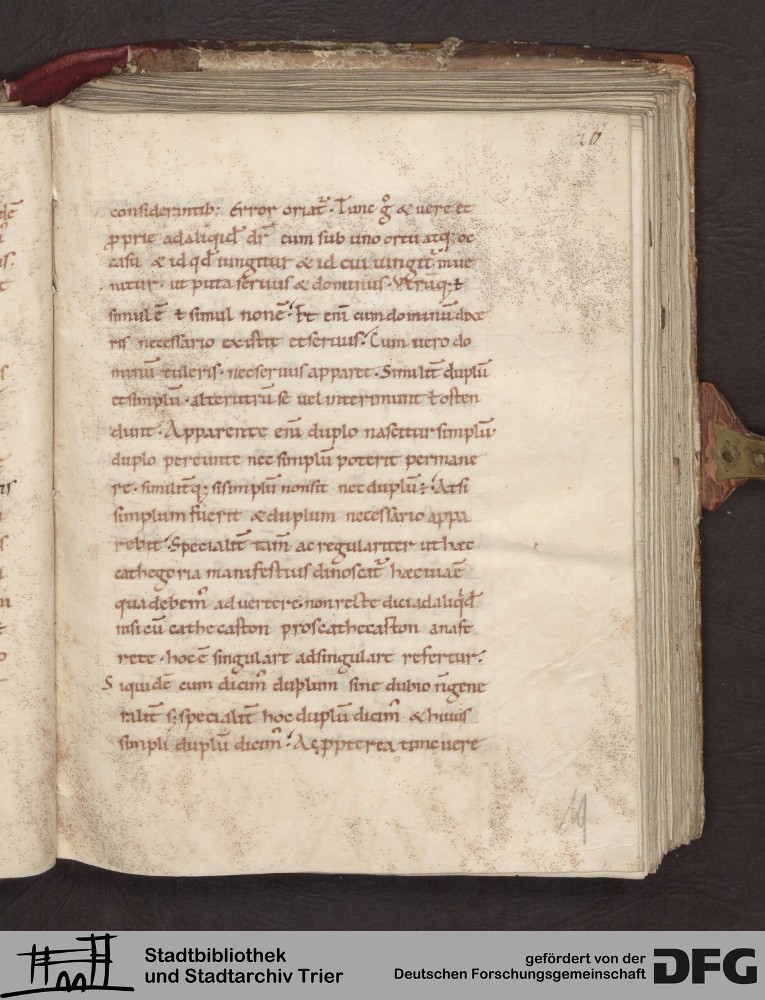 20
considerantib; Error oriat̄. Tunc gͦ & vere et
p̱prie ad aliqid dr̄ cum sub uno ortu atq; oc
casu & id qd̄ iungitur & id cui iungit̄ inue
nitur. ut puta seruus & dominus. Vtrūq; ł
simul ē ł simul non ē. Et enī cum dominū dixe
ris necessario existit et seruus. Cum uero do
minū tuleris. nec seruus apparet. Similit̄ duplū
et simplū. alterutrū se uel interimunt ł osten
dunt. Apparente enī duplo nascitur simplū.
duplo pereunte nec simplū poterit permane
re. similit̄q; si simplū non sit nec duplū; At si
simplum fuerit & duplum necessario appa
rebit. Specialit̄ tam̄ ac regulariter ut haec
cathegoria manifestius dinoscat̄ haec uia ē
qua debem̄ aduertere. non recte dici ad aliqid
nisi cū cathecaston proscathecaston anafe
rete. hoc ē singulare ad singulare refertur.
Siquidē cum dicim̄ duplum sine dubio n̄ gene
ralit̄ s; specialit̄ hoc duplū dicim̄ & huius
simpli duplū dicim̄. Ac p̱pterea tunc uere
19
Stadtbibliothek
und Stadtarchiv Trier
gefördert von der
Deutschen Forschungsgemeinschaft
DFG